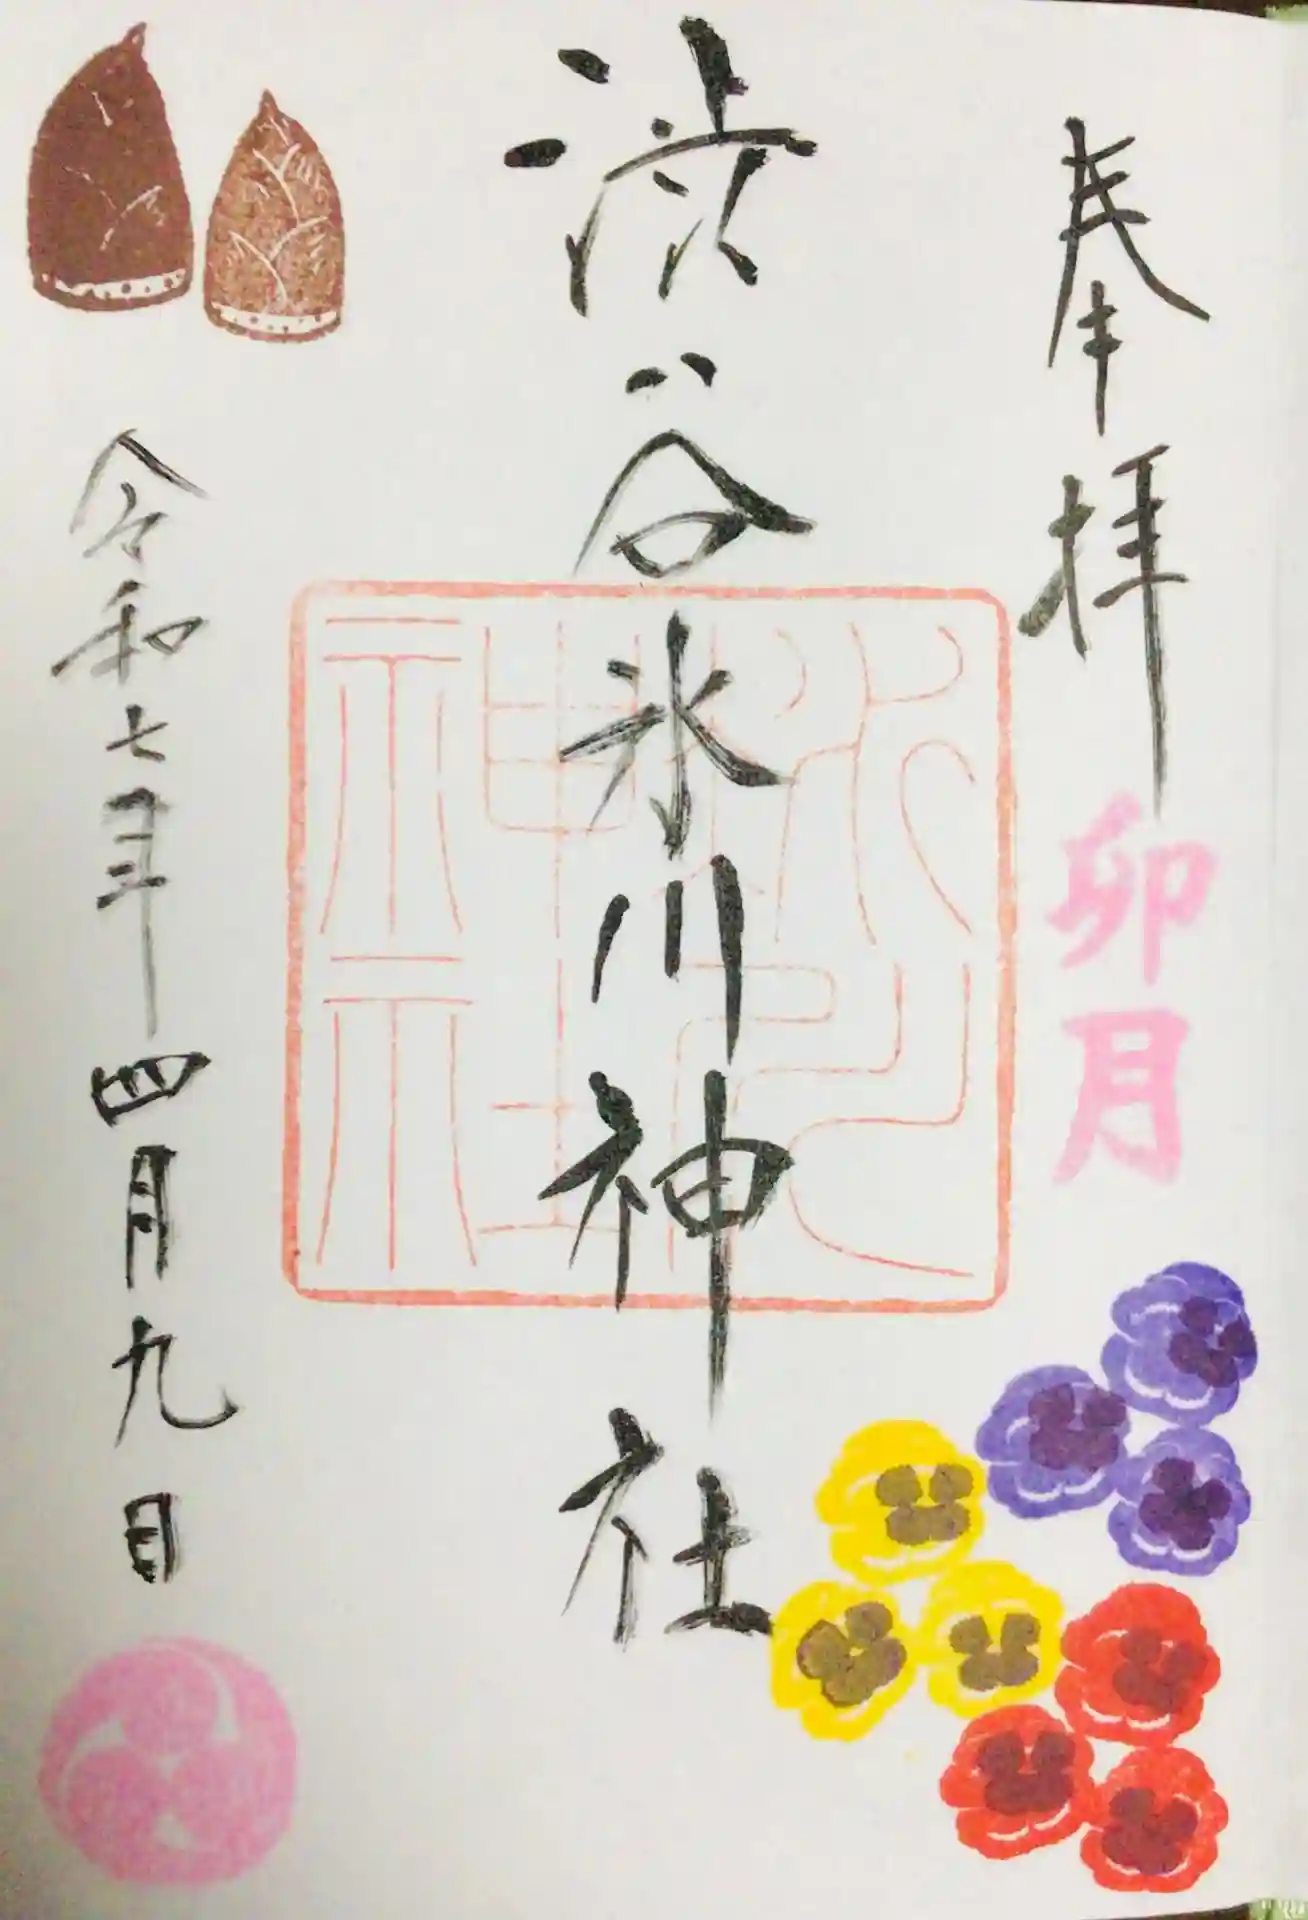 奉拝
卯月
渋谷氷川神社
氷川神社
令和七年四月九日